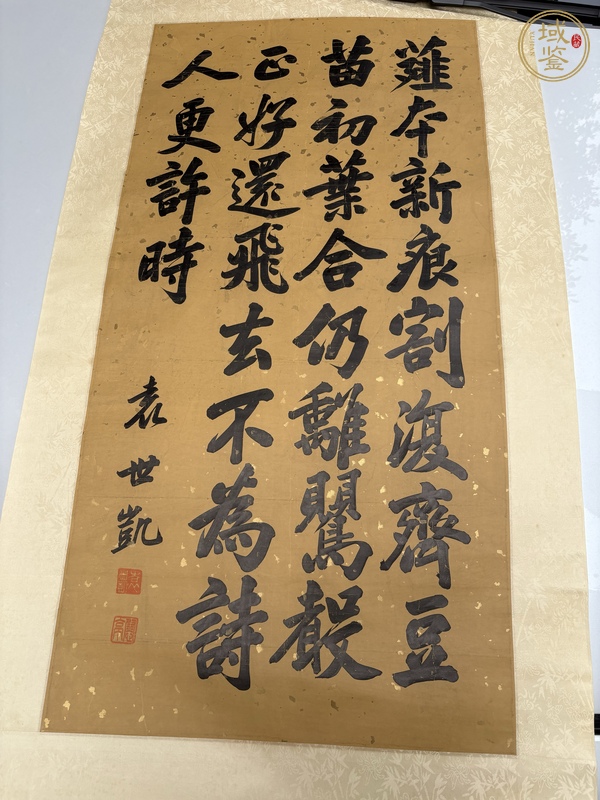 薤本新痕割復齊豆
苗初葉合仍離鸎聲
正好還飛去不為詩
人更許時
袁世凱
域鉴